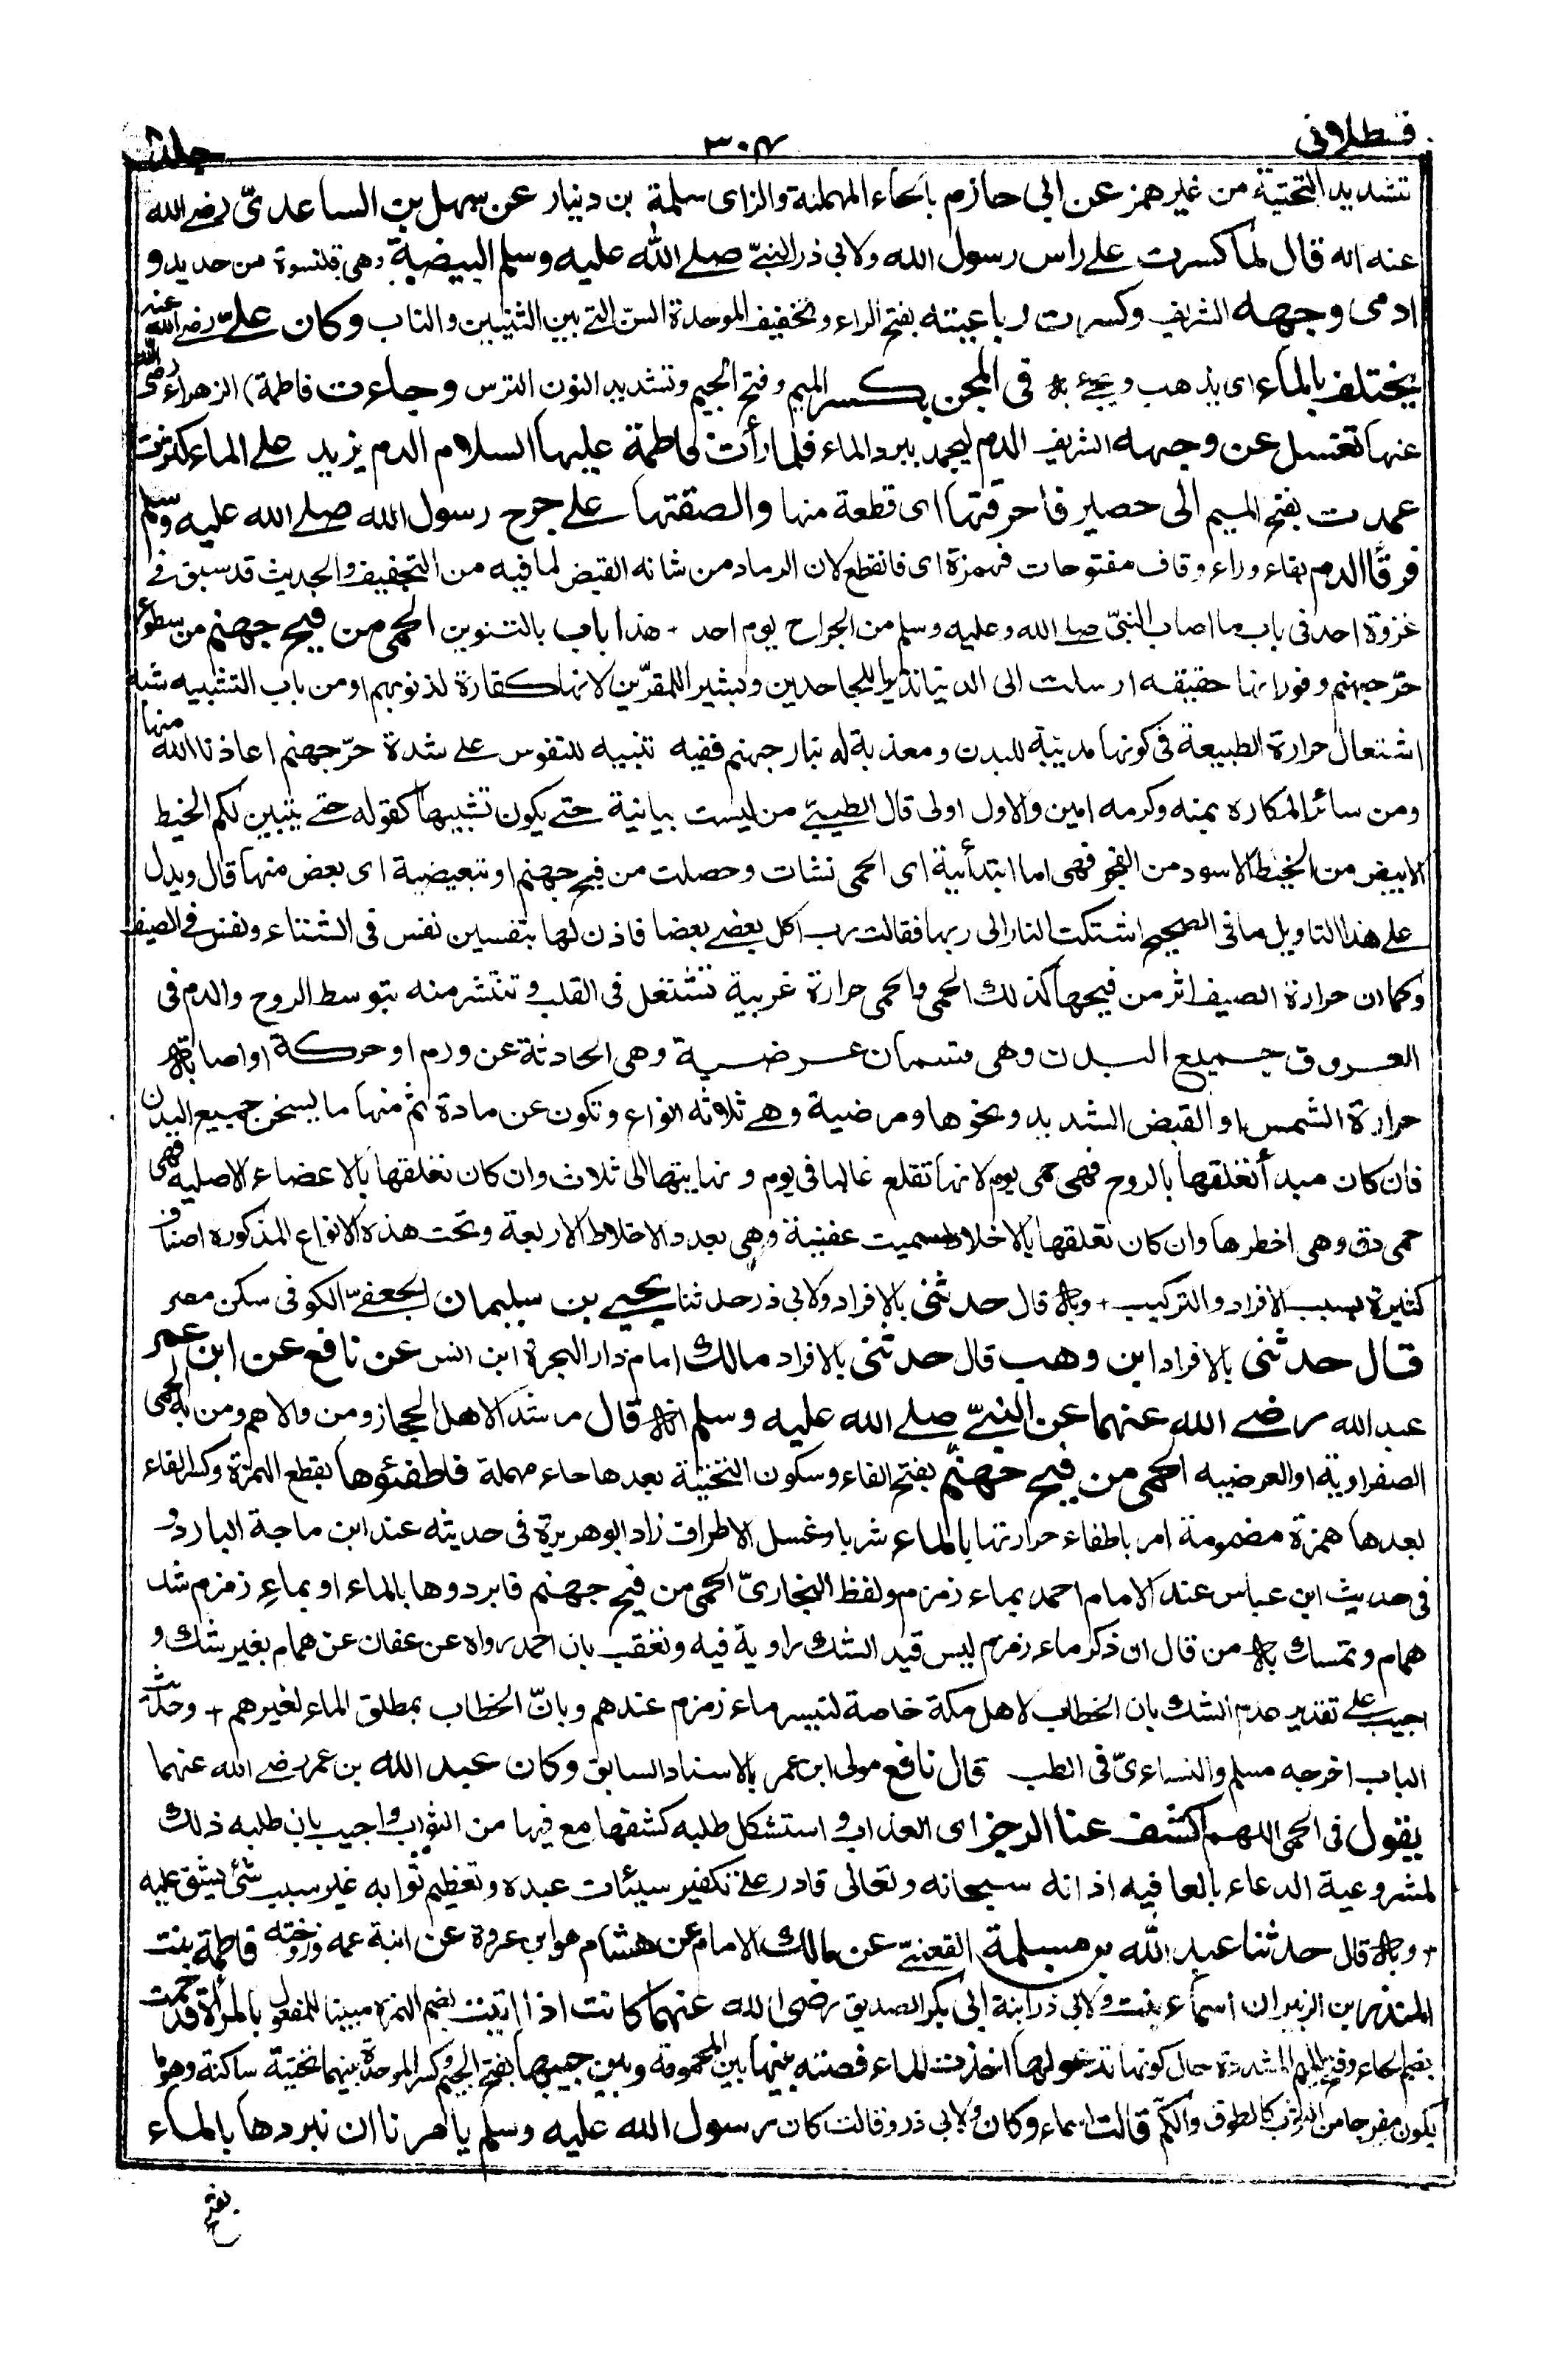 قسطلانى
٣٠٤
جلد
تشديد التحتية من غير همز عن ابى حازم بالحاء المهملة والزاى سلمة بن دينار عن سهل بن الساعدىّ رضے الله
عنه انه قال لما كسرت علے راس رسول الله ولابى ذر النبىّ صلے الله عليه وسلم البيضة وهى قلنسوة من حديد و
ادمى وجهه الشريف وكسرت رباعيته بفتح الراء وتخفيف الموحدة السن التے بين الثنيتين والناب وكان علىّ رضے الله عنه
يختلف بالماء اى يذهب ويجئ به فى المجن بكسر الميم وفتح الجيم وتشديد النون الترس وجاءت فاطمة) الزهراء رضى الله
عنها تغسل عن وجهه الشريف الدم ليجمد ببرد الماء فلما رأت فاطمة عليها السلام الدم يزيد علے الماء كثرت
عمدت بفتح الميم الى حصير فاحرقتها اى قطعة منها والصقتها علے جرح رسول الله صلے الله عليه وسلم
فرقأ الدم بفاء وراء وقاف مفتوحات فهمزة اى فانقطع لان الرماد من شانه القبض لما فيه من التجفيف والحديث قد سبق فے
غزوة احد فى باب ما اصاب النبىّ صلے الله وعليه وسلم من الجراح يوم احد + هذا باب بالتنوين الحمى من فيح جهنم من سطوع
حرّ جهنم وفورانها حقيقه ارسلت الى الدنيا نذيرا للجاحدين وبشيرا للمقرّين لانها كفارة لذنوبهم او من باب التشبيه شبه
اشتعال حرارة الطبيعة فى كونها مذيبة للبدن ومعذبة له بنار جهنم ففيه تنبيه للنفوس علے شدة حرّ جهنم اعاذنا الله منها
ومن سائر المكاره بمنه وكرمه امين والاول اولى قال الطيبىّ من ليست بيانية حتے يكون تشبيها كقوله حتے يتبين لكم الخيط
الابيض من الخيط الاسود من الفجر فهى اما ابتدأئية اى الحمى نشات وحصلت من فيح جهنم او تبعيضية اى بعض منها قال ويدل
علے هذا التاويل ما فى الصحيح اشتكت النار الى ربها فقالت رب اكل بعضے بعضا فاذن لها بنفسين نفس فى الشتاء ونفس فے الصيف
وكما ان حرارة الصيف اثر من فيحها كذلك الحمى والحمى حرارة غريبة تشتعل فى القلب وتنتشر منه بتوسط الروح والدم فى
العروق جميع البدن وهى قسمان عرضية وهى الحادثة عن ورم او حركة او اصابة
حرارة الشمس او القبض الشديد ونحوها ومرضية وهے ثلاثه انواع وتكون عن مادة ثم منها ما يسخن جميع البدن
فان كان مبدأ تعلقها بالروح فهى حمى يوم لانها تقلع غالبا فى يوم ونهايتها الى ثلاث وان كان تعلقها بالاعضاء الاصلية فهى
حمى دق وهى اخطرها وان كان تعلقها بالاخلاط سميت عفنية وهى بعدد الاخلاط الاربعة وتحت هذه الانواع المذكوره اصناف
كثيرة بسبب الافراد والتركيب + وبه قال حدثنى بالافراد ولابى ذر حدثنا يحيے بن سليمان الجعفىّ الكوفى سكن مصر
قال حدثنى بالافراد ابن وهب قال حدثنى بالافراد مالك امام دار الهجرة ابن انس عن نافع عن ابن عمر
عبد الله رضے الله عنهما عن النبىّ صلے الله عليه وسلم انه قال مرشدا لاهل الحجاز ومن والاهم ومن به الحمى
الصفراوية او العرضيه الحمى من فيح جهنم بفتح الفاء وسكون التحتية بعدها حاء مهملة فاطفئوها بقطع الهمزة وكسر الفاء
بعدها همزة مضمومة امر باطفاء حرارتها بالماء شربا وغسل الاطراف زاد ابو هريرة فى حديثه عند ابن ماجة البارد و
فى حديث ابن عباس عند الامام احمد بماء زمزم ولفظ البخارىّ الحمى من فيح جهنم فابردوها بالماء او بماء زمزم شك
همام وتمسك به من قال ان ذكر ماء زمزم ليس قيد الشك راوية فيه وتعقب بان احمد رواه عن عفان عن همام بغير شك و
اجيب علے تقدير عدم الشك بان الخطاب لاهل مكة خاصة لتيسر ماء زمزم عندهم وبانّ الخطاب بمطلق الماء لغيرهم + وحديث
الباب اخرجه مسلم والنساءىّ فى الطب قال نافع مولى ابن عمر بالاسناد السابق وكان عبد الله بن عمر رضے الله عنهما
يقول فى الحمى اللهم اكشف عنا الرجز اى العذاب و استشكل طلبه كشفها مع فيها من الثواب واجيب بان طلبه ذلك
لمشروعية الدعاء بالعافيه اذ انه سبحانه وتعالى قادر علے تكفير سيئات عبده وتعظيم ثوابه غير سبب شئ يشق عليه
+ وبه قال حدثنا عبد الله بن مسلمة القعنبىّ عن مالك الامام عن هشام هو ابن عروة عن ابنة عمه وزوجته فاطمة بنت
المنذر بن الزبير ان اسماء بنت ولابى ذر ابنة ابى بكر الصديق رضى الله عنهما كانت اذا اتيت بضم الهمزة مبينا للمفعول بالمرأة قد حمت
بضم الحاء وفتح الميم المشددة حال كونها تدعو لها اخذت الماء فصبته بينها بين المحمومة وبين جيبها بفتح الجيم وكسر الموحدة بينهما تحتية ساكنة وهو ما
يكون مفرجا من الثوب كالطوق والكم قالت اسماء وكان ولابى ذر وقالت كان رسول الله عليه وسلم يأمرنا ان نبردها بالماء
بفتح